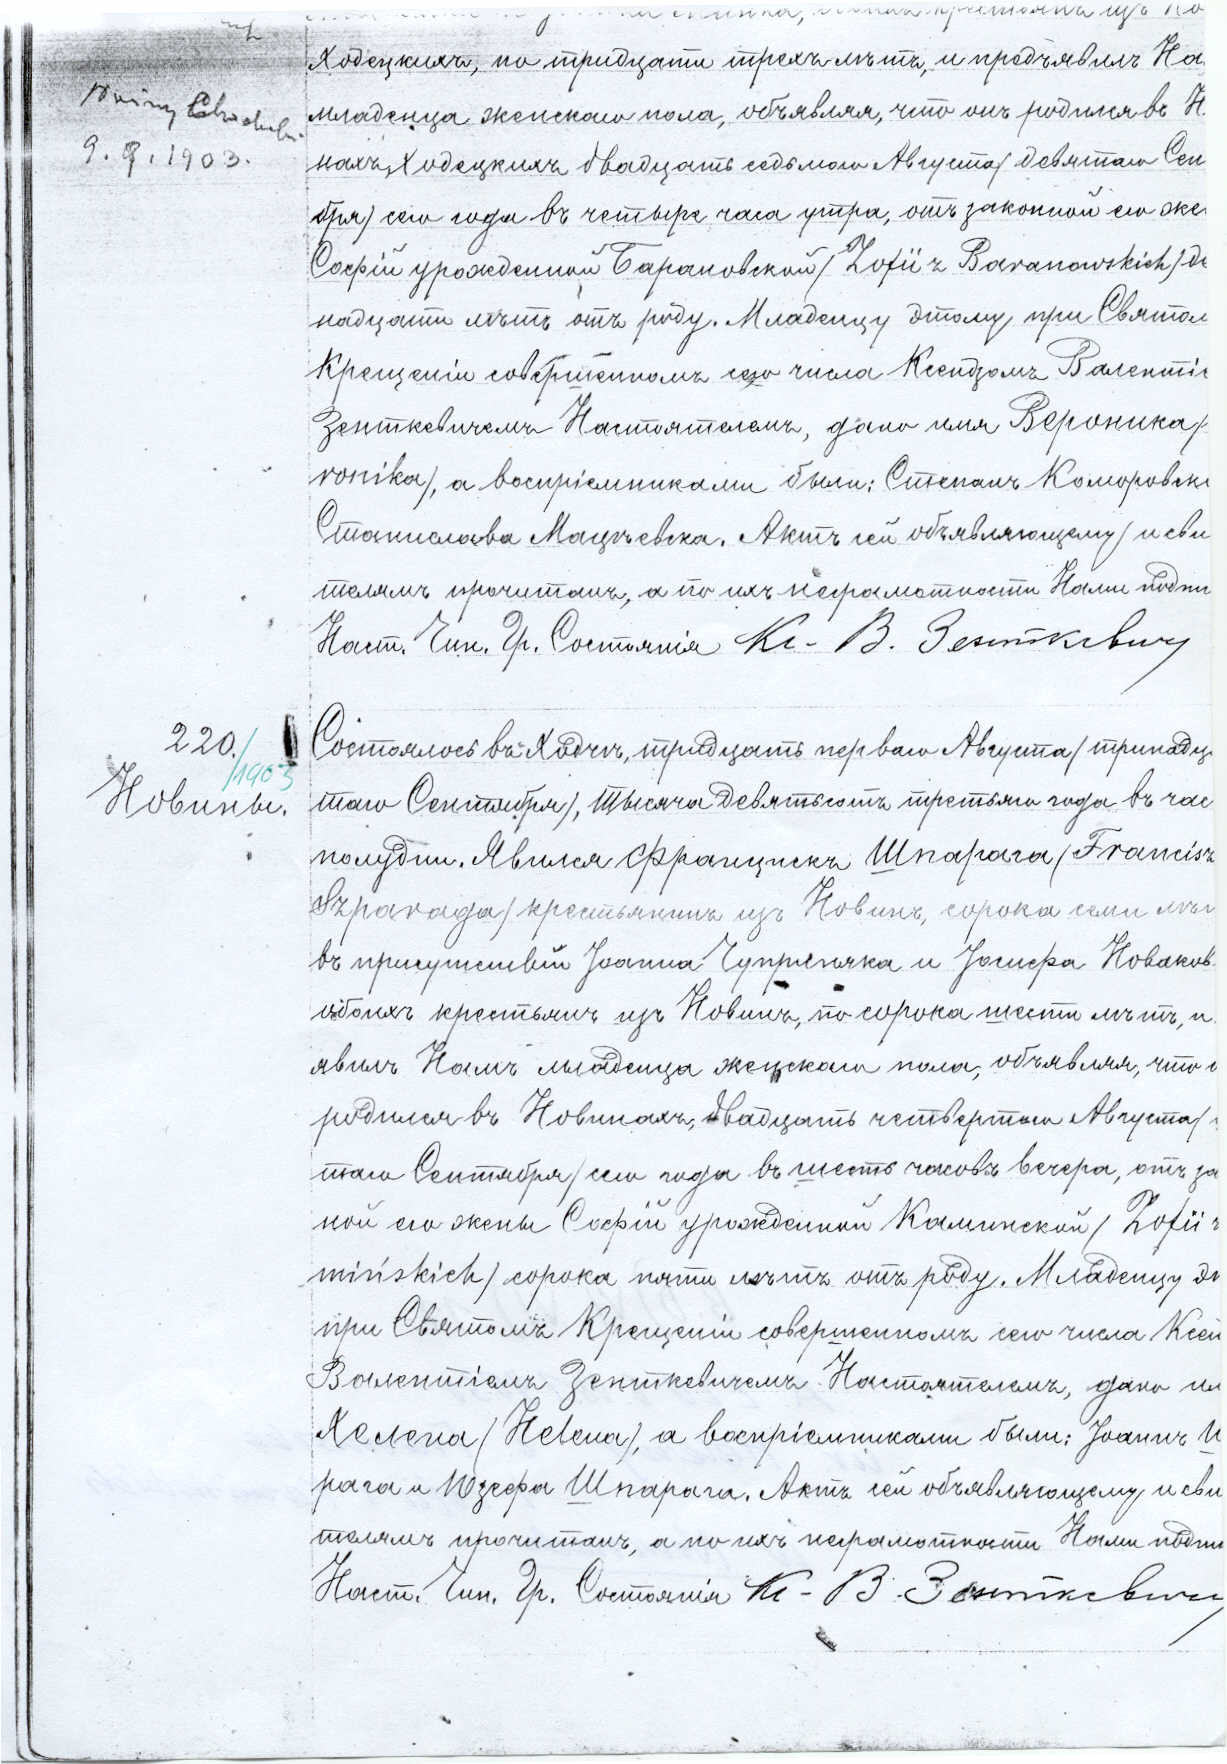 Ходецкихъ, по тридцати трехъ лѣтъ, и предъявилъ На
младенца женскаго пола, объявляя, что онъ родился въ Н
9. 9. 1903.
нахъ Ходецкихъ двадцать седьмого Августа/ девятаго Сен
бря/ сего года въ четыре часа утра, отъ законной его же
Софіи урожденной Барановской/ Zofii z Baranowskich/ д
надцати лѣтъ отъ роду. Младенцу этому при Святом
Крещеніи совершенномъ сего числа Ксендзомъ Валенті
Зенткевичемъ Настоятелемъ, дано имя Вероника/
ronika/, а воспріемниками были: Степанъ Коморовск
Станислава Мацѣевска. Актъ сей объявляющему и сви
телямъ прочитанъ, а по ихъ неграмотности Нами подпи
Наст. Чин. Гр. Состоянія Кс- В. Зенткевичъ
220./1903
Новины.
Состоялось въ Ходчѣ, тридцать перваго Августа/ тринадц
таго Сентября/, тысяча девятьсотъ третьяго года въ час
полудни. Явился Францискъ Шпарага/ Francisz
Szparaga/ крестьянинъ изъ Новинъ, сорока семи лѣт
въ присутствіи Іоанна Чупрыняка и Іосифа Новаков
обоихъ крестьянъ изъ Новинъ, по сорока шести лѣтъ, и
явилъ Намъ младенца женскаго пола, объявляя, что о
родился въ Новинахъ, двадцать четвертаго Августа/
таго Сентября/ сего года въ шесть часовъ вечера, отъ за
ной его жены Софіи урожденной Каминской/ Zofii z
mińskich/ сорока пяти лѣтъ отъ роду. Младенцу эт
при Святомъ Крещеніи совершенномъ сего числа Ксен
Валентіемъ Зенткевичемъ Настоятелемъ, дано им
Хелена/ Helena/, а воспріемниками были: Іоаннъ Ш
рага и Юзефа Шпарага. Актъ сей объявляющему и сви
телямъ прочитанъ, а по ихъ неграмотности Нами подпи
Наст. Чин. Гр. Состоянія Кс- В. Зенткевичъ